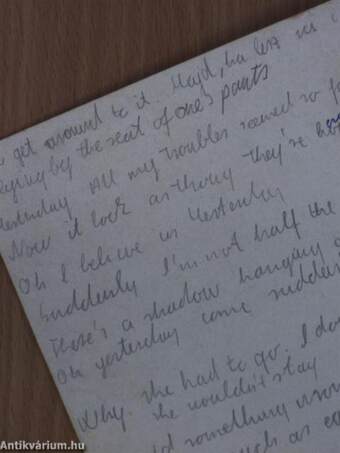 get around to it. Majd, ha lesz
flying by the seat of one's pants
Yesterday All my troubles seemed so
Now it look as thoug they're
Oh I believe in Yesterday
Suddenly I'm not half the
There's a shadow hanging
Oh yesterday come sudden
Why she had to go. I do
she wouldn't stay
something
Antikvárium.hu